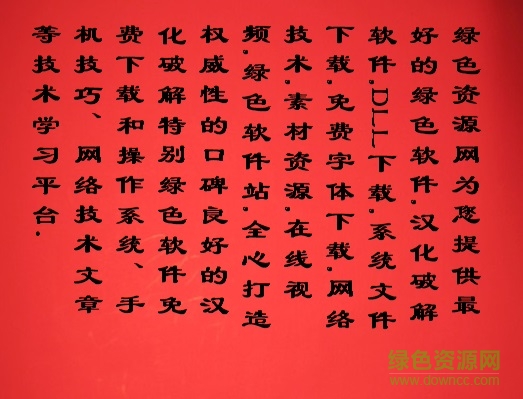 绿色资源网为您提供最
好的绿色软件,汉化破解
软件,DLL下载,系统文件
下载,免费字体下载,网络
技术,素材资源,在线视
频,绿色软件站,全心打造
权威性的口碑良好的汉
化破解特别绿色软件免
费下载和操作系统、手
机技巧、网络技术文章
等技术学习平台.
绿色资源网
www.downcc.com